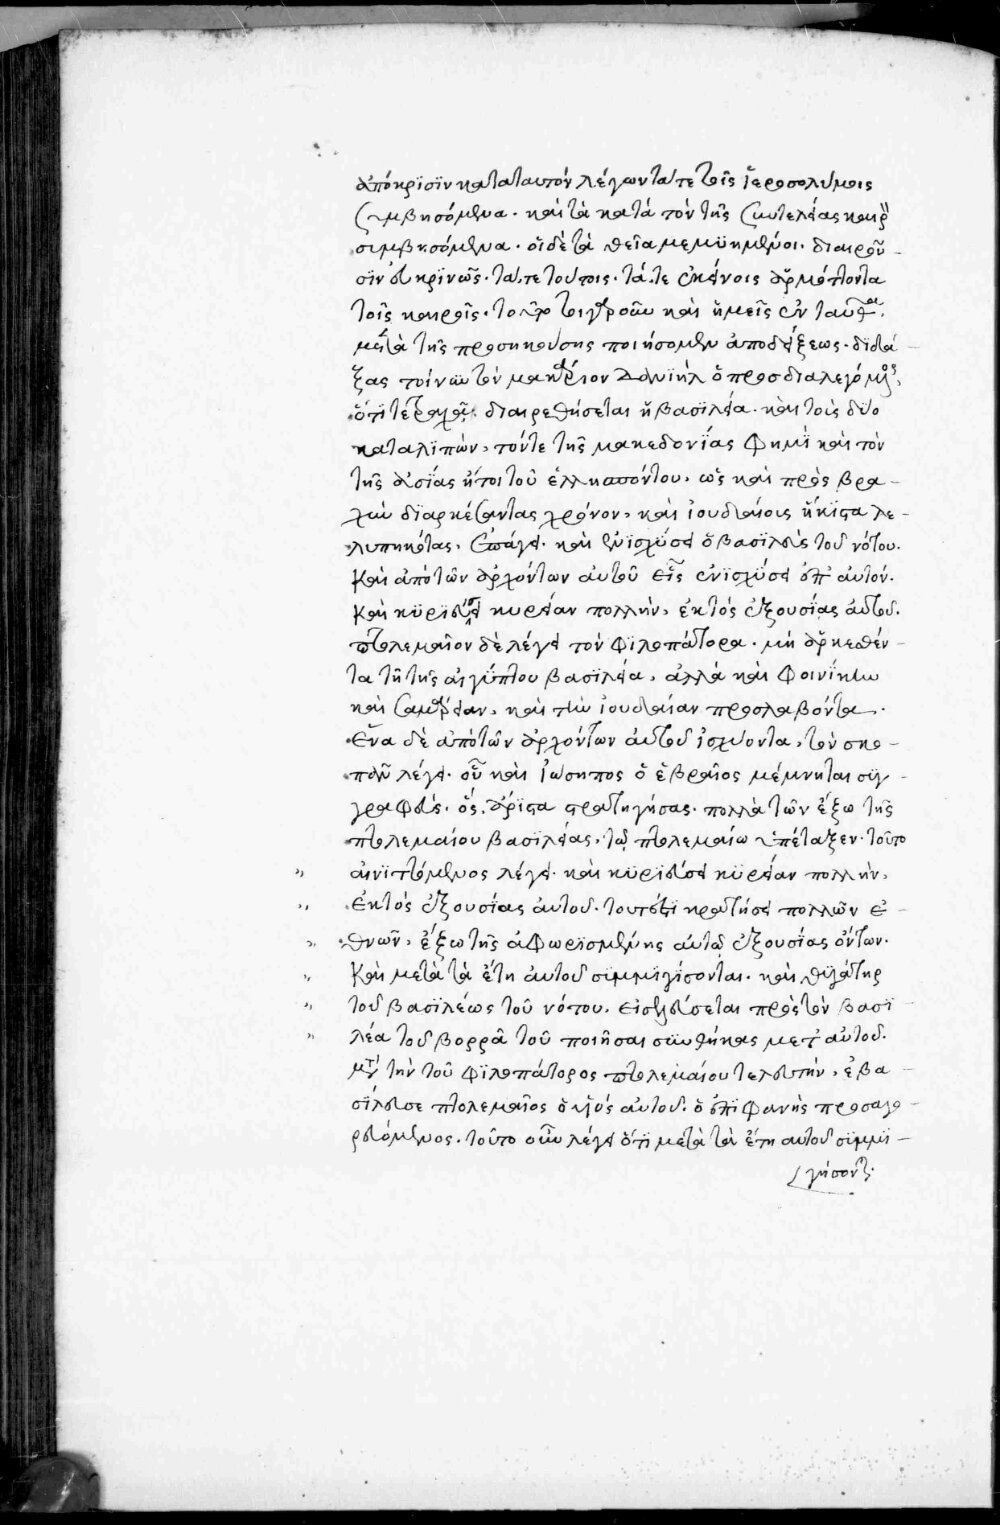 ἀπόκρϊσϊν καταταυτὸν λέγων τά τε τοῖς ἱεροσολύμοις
συμβησόμενα. καὶ τὰ κατὰ τὸν τῆς συντελείας καιρὸν
συμβησόμενα. οἱ δὲ τὰ θεῖα μεμϋημένοι. διαιροῦ -
σϊν εὐκρϊνῶς. τά τε τούτοις. τά τε ἐκείνοις ἁρμόττοντα
τοῖς καιροῖς. τοῦτο τοιγαροῦν καὶ ἡμεῖς ἐνταῦθα.
μετὰ τῆς προσηκούσης ποιήσομεν ἀποδείξεως. διδά -
ξας τοίνυν τὸν μακάριον Δανϊὴλ ὁ προσδιαλεγόμενος,
ὅτϊ τέτραχα διαιρεθήσεται ἡ βασϊλεία. καὶ τοὺς δύο
καταλϊπὼν, τόν τε τῆς μακεδονΐας φημϊ καὶ τὸν
τῆς ἀσΐας ἤτοι τοῦ ἑλλησπόντου, ὡς καὶ πρὸς βρα -
χὺν δϊαρκέσαντας χρόνον, καὶ ἰουδαίοις ἥκϊστα λε -
λυπηκότας, ἐπάγει. καὶ ἐνϊσχύσει ὁ βασϊλεὺς τοῦ νότου.
καὶ ἀπὸ τῶν ἀρχόντων αὐτοῦ εἷς ἐνϊσχύσει ἐπ' αὐτόν.
καὶ κϋρϊεύσει κυρείαν πολλὴν, ἐκτὸς ἐξουσΐας αὐτοῦ.
πτολεμαῖον δὲ λέγει τὸν φϊλοπάτορα. μὴ ἀρκεσθέν -
τα τῆ τῆς αἰγύπτου βασϊλεία, ἀλλὰ καὶ φοινΐκην
καὶ σαμάρειαν, καὶ τὴν ἰουδαίαν προσλαβόντα.
ἕνα δὲ ἀπὸ τῶν ἀρχόντων αὐτοῦ ἰσχύοντα, τὸν σκο -
πᾶν λέγει. οὗ καὶ ἰώσηπος ὁ ἑβραῖος μέμνηται συγ -
γραφεὺς. ὃς ἄρϊστα στρατηγήσας. πολλὰ τῶν ἔξω τῆς
πτολεμαίου βασϊλείας, τῷ πτολεμαίω ὑπέταξεν. τοῦτο
αἰνϊττόμενος λέγει. καὶ κϋρϊεύσει κϋρείαν πολλὴν,
ἐκτὸς ἐξουσίας αὐτοῦ. τουτέστϊ κρατήσει πολλῶν ἐ -
θνῶν, ἔξω τῆς ἀφωρϊσμένης αὐτῷ ἐξουσίας ὄντων.
καὶ μετὰ τὰ ἔτη αὐτοῦ συμμϊγΐσονται. καὶ θϋγάτηρ
τοῦ βασϊλέως τοῦ νότου. εἰσελεύσεται πρὸς τὸν βασϊ -
λέα τοῦ βορρᾶ τοῦ ποιῆσαι συνθήκας μετ' αὐτοῦ.
μετὰ τὴν τοῦ φϊλοπάτορος πτολεμαίου τελευτὴν, ἐβα -
σΐλευσε πτολεμαῖος ὁ υἱὸς αὐτοῦ. ὁ ἐπϊφανὴς προσαγο -
ρευόμενος. τοῦτο οὖν λέγει ὅτϊ μετὰ τὰ ἔτη αὐτοῦ συμμϊ -
γήσονται.